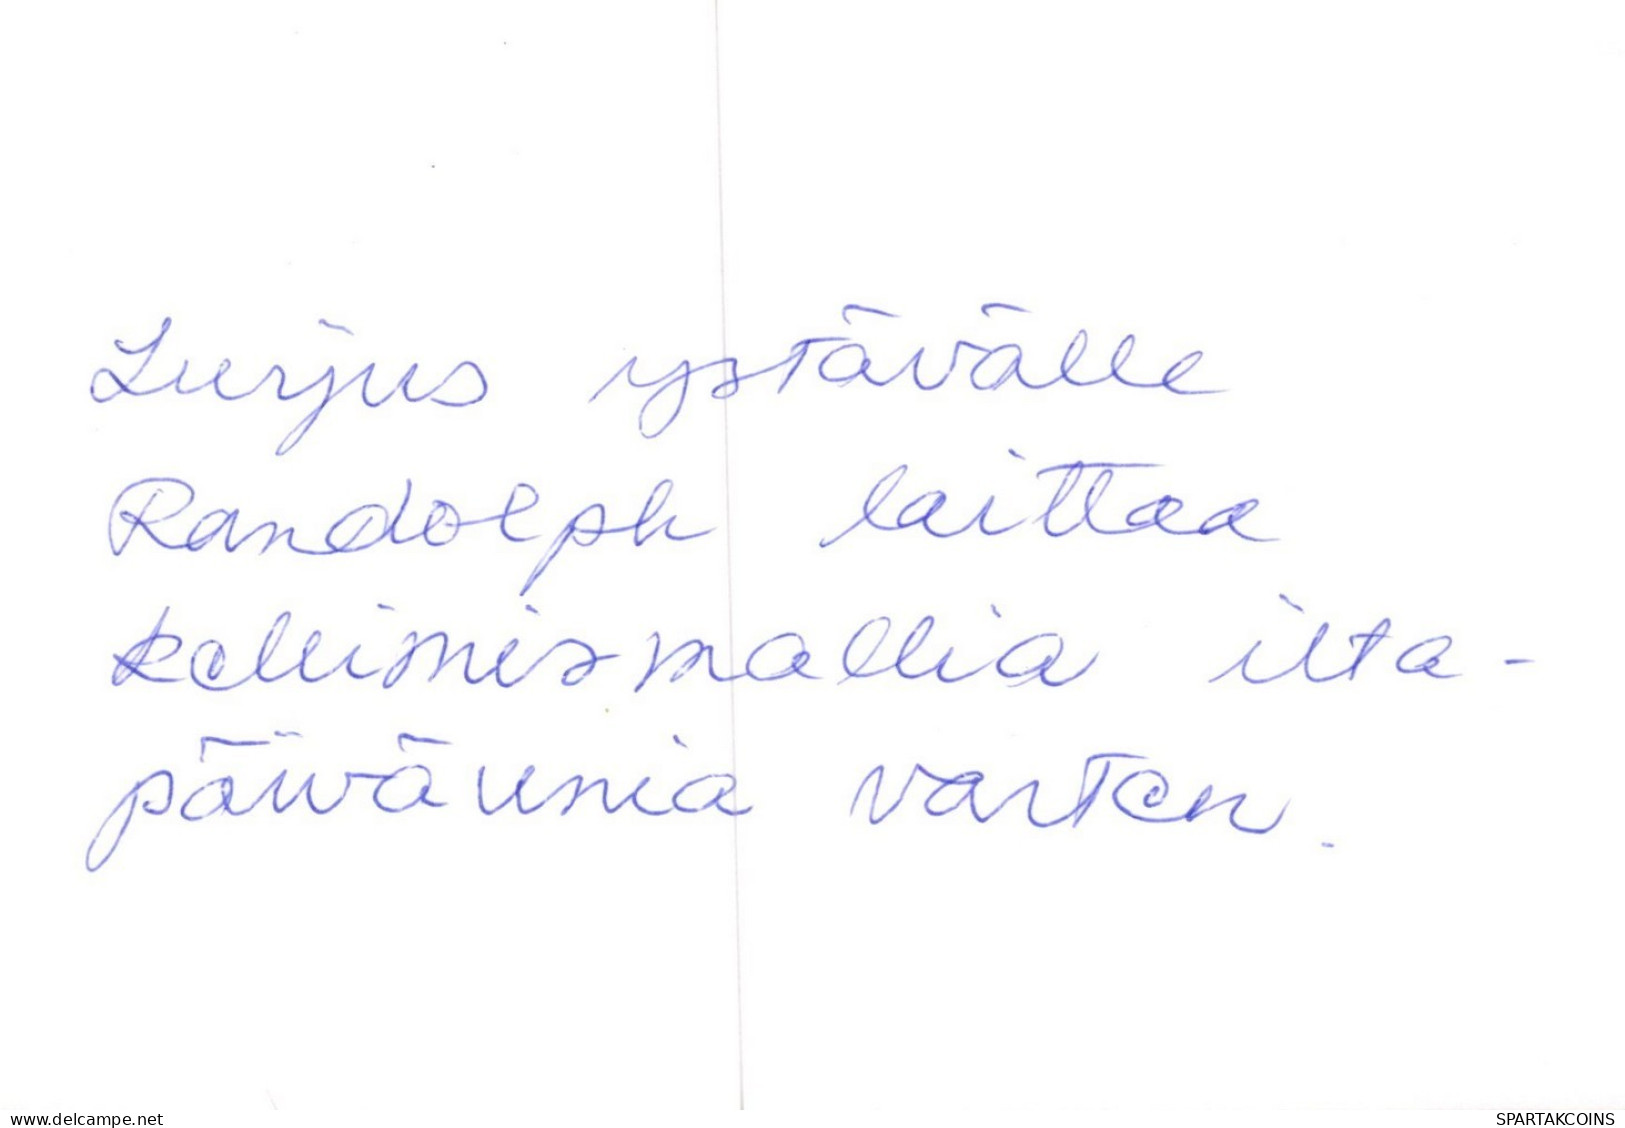 Lurjus ystävälle
Randolph laittaa
kellimismallia ilta-
päiväunia varten.
www.delcampe.net
SPARTAKCOINS